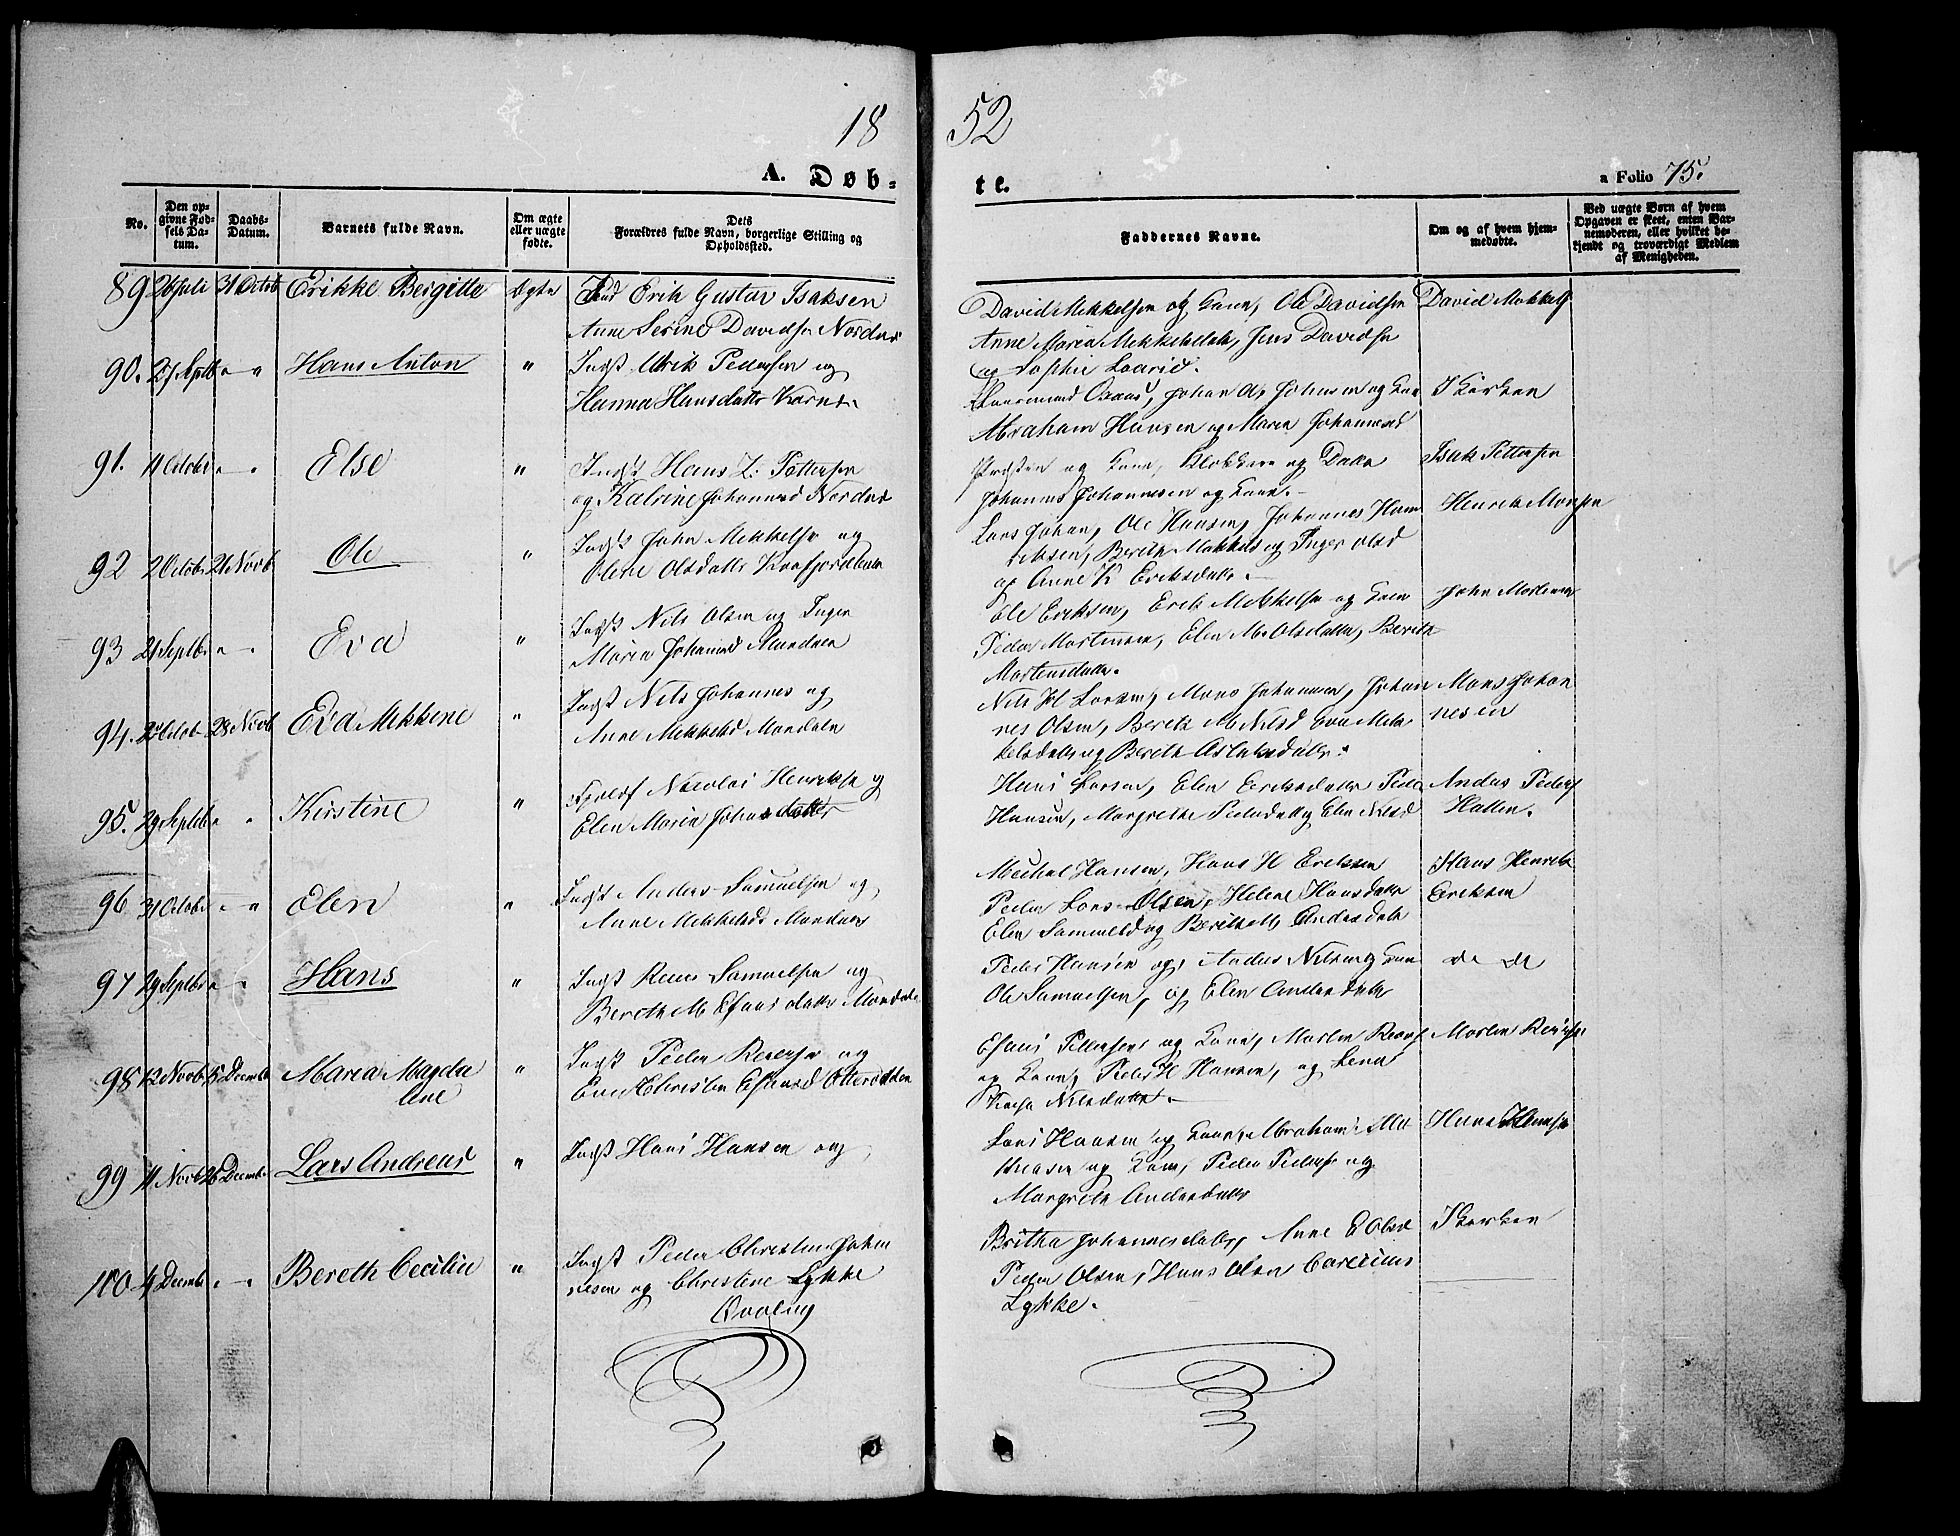 1852
A. Døbte.
a Folio 75.
No.
Den opgivne Fødsels Datum.
Daabs-Datum.
Barnets fulde Navn.
Om ægte eller uægte fødte.
Dets Forældres fulde Navn, borgerlige Stilling og Opholdssted.
Faddernes Navne.
Om og af hvem hjemmedøbte.
Ved uægte Børn af hvem Opgaven er skeet, enten Barnemoderen, eller hvilket bekjendt og troværdigt Medlem af Menigheden.
89 26 Juli 31 Octob Erikke Bergitte Ægte Erik Gustav Isaksen
Anne Serine Davids Nordnæs
David Mikkelsen og Kone, Ole Davidsen
Anne Maria Mikkelsdatt, Jens Davidsen
og Sophie Lavrid.
David Mikkels
90. 27 Septb " " Hans Anton " Inds Ulrik Pedersen og
Hanna Hansdatter Kornes
Johan A. Johnsen og Kone
Abraham Hansen og Maria Johannesd
I Kirken
91. 11 October " " Else " Inds Hans Z. Pettersen
og Katrine Johannesd Nordnæs
Præsten og Kone, Klokkeren og Datter
Johannes Johannesen og Kone.
Isak Pettersen
92 2 Octobr 21 Novb Ole " Inds John Mikkelsen og
Olene Olsdatter Kaafjordbotn
Lars Johan, Ole Hansen, Johannes Hen
riksen, Berith Mikkelsd og Inger Olsd
og Anne K Eriksdatter.
Henrik Monsen
93 21 Septbr " " Eva " Inds Nils Olsen og Inger
Maria Johannesd Mandalen
Ole Eriksen, Erik Mikkelsen og Kone
Peder Mortensen, Elen M. Olsdatter, Berith
Mortensdatter.
John Mortensen
94. 20 Octob 28 Novb Eva Mikkene " Inds Nils Johannes og
Anne Mikkelsd Mandalen
Nils H Larsen, Mons Johannesen, Johan
nes Olsen, Berith M. Nilsd Eva Mik
kelsdatter og Berith Aslaksdatter.
Mons Johan
nesen
95. 29 Septbr " " Kirstine " Nicolai Henriksen og
Elen Maria Johansdatter
Hans Larsen, Elen Eriksdatter Peder
Hansen, Margrethe Pedersdatt og Elen Nilsd
Andas Peders
Hatten.
96 31 October " " Elen " Inds Anders Samuelsen og
Anne Mikkelsd Mandalen
Mikkel Hansen, Hans H Eriksen
Peder Lars Olsen, Helene Hansdatter
Elen Samuelsd og Berith M. Andersdatter
Hans Henrik
Eriksen
97 29 Septbr " " Hans " Inds Samuelsen og
Bereth M Esaiasdatter Mandalen
Peder Hansen og Anders Nilsen og Kone
Ole Samuelsen, og Elen Andersdatter
de de
98 12 Novb 15 Decembr Maria Magda
lene " Inds Peder Reiersen og
Eva Christen Esaiasd Olderdalen
Esaias Pettersen og Kone, Morten Reiers
og Kone, Peder H Hansen, og Lena
Kaisa Nilsdatter.
Morten Reiers
99 11 Novb 26 Decembr Lars Andreas " Inds Hans Hansen og
Lars Hansen og Kone, Abraham Ma
thiasen og Kone, Peder Peders og
Margreth Andersdatter
Hans
100 4 Decembr " " Bereth Cecilia " Inds Peder Christian Johan
nesen og Christine Lykke
Qvaling
Britha Johannesdatter, Anne E Olsd
Peder Olsen, Hans Olsen
Lykke.
I Kirken